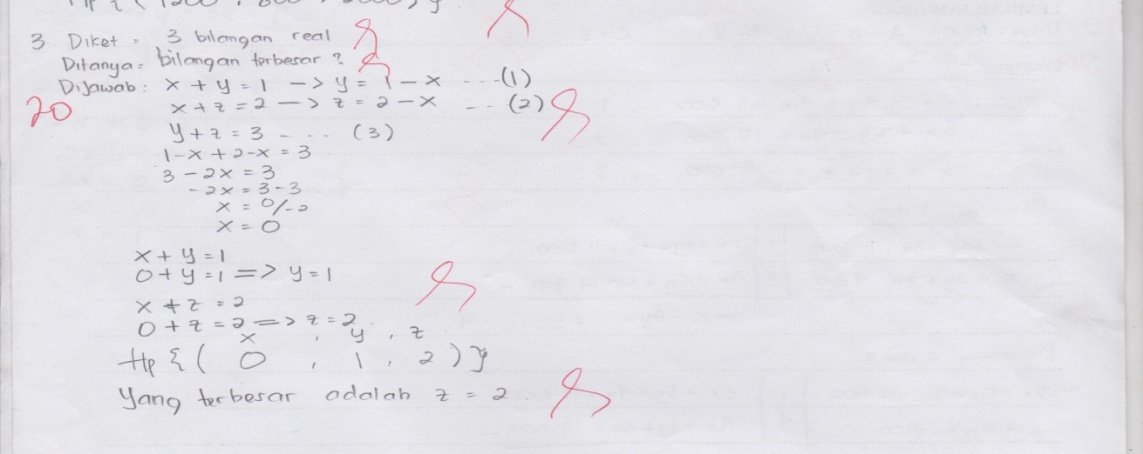 Hp { ( 1200 , 800 , 2000 ) }
3 Diket = 3 bilangan real
Ditanya = bilangan terbesar ?
Dijawab : x + y = 1 —> y = 1 - x ---- (1)
20
x + z = 2 —> z = 2 - x -- (2)
y + z = 3 - ... (3)
1 - x + 2 - x = 3
3 - 2x = 3
- 2x = 3 - 3
x = 0/-2
x = 0
x + y = 1
0 + y = 1 => y = 1
x + z = 2
0 + z = 2 => z = 2
x , y , z
Hp { ( 0 , 1 , 2 ) }
Yang terbesar adalah z = 2